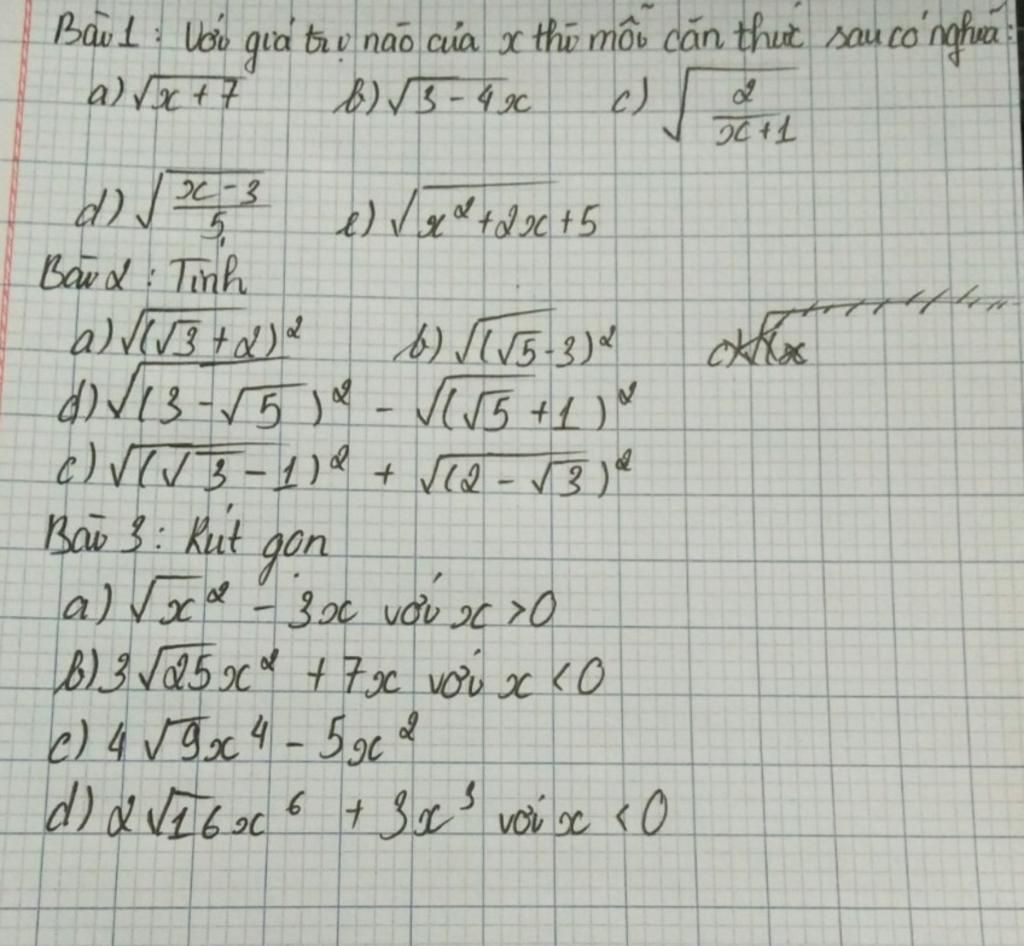 Bài 1: Với giá trị nào của x thì mỗi căn thức sau có nghĩa:
a) √(x + 7) b) √(3 - 4x) c) √(2/(x+1))
d) √((x-3)/5) e) √(x²+2x+5)
Bài 2: Tính
a) √((√3+2)²) b) √((√5-3)²)
d) √((3-√5)²) - √((√5+1)²)
c) √((√3-1)²) + √((2-√3)²)
Bài 3: Rút gọn
a) √x² - 3x với x >0
b) 3√25x² + 7x với x <0
c) 4√9x⁴ - 5x²
d) 2√16x⁶ + 3x³ với x <0